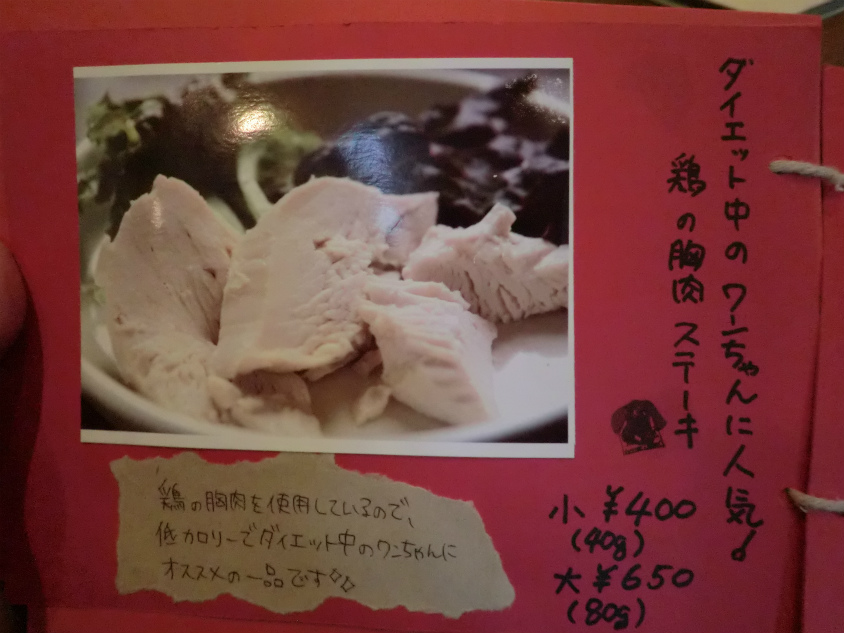 ダイエット中のワンちゃんに人気!
鶏の胸肉ステーキ
小 ¥400
(40g)
大 ¥650
(80g)
鶏の胸肉を使用しているので、
低カロリーでダイエット中のワンちゃんに
オススメの一品です♪♪